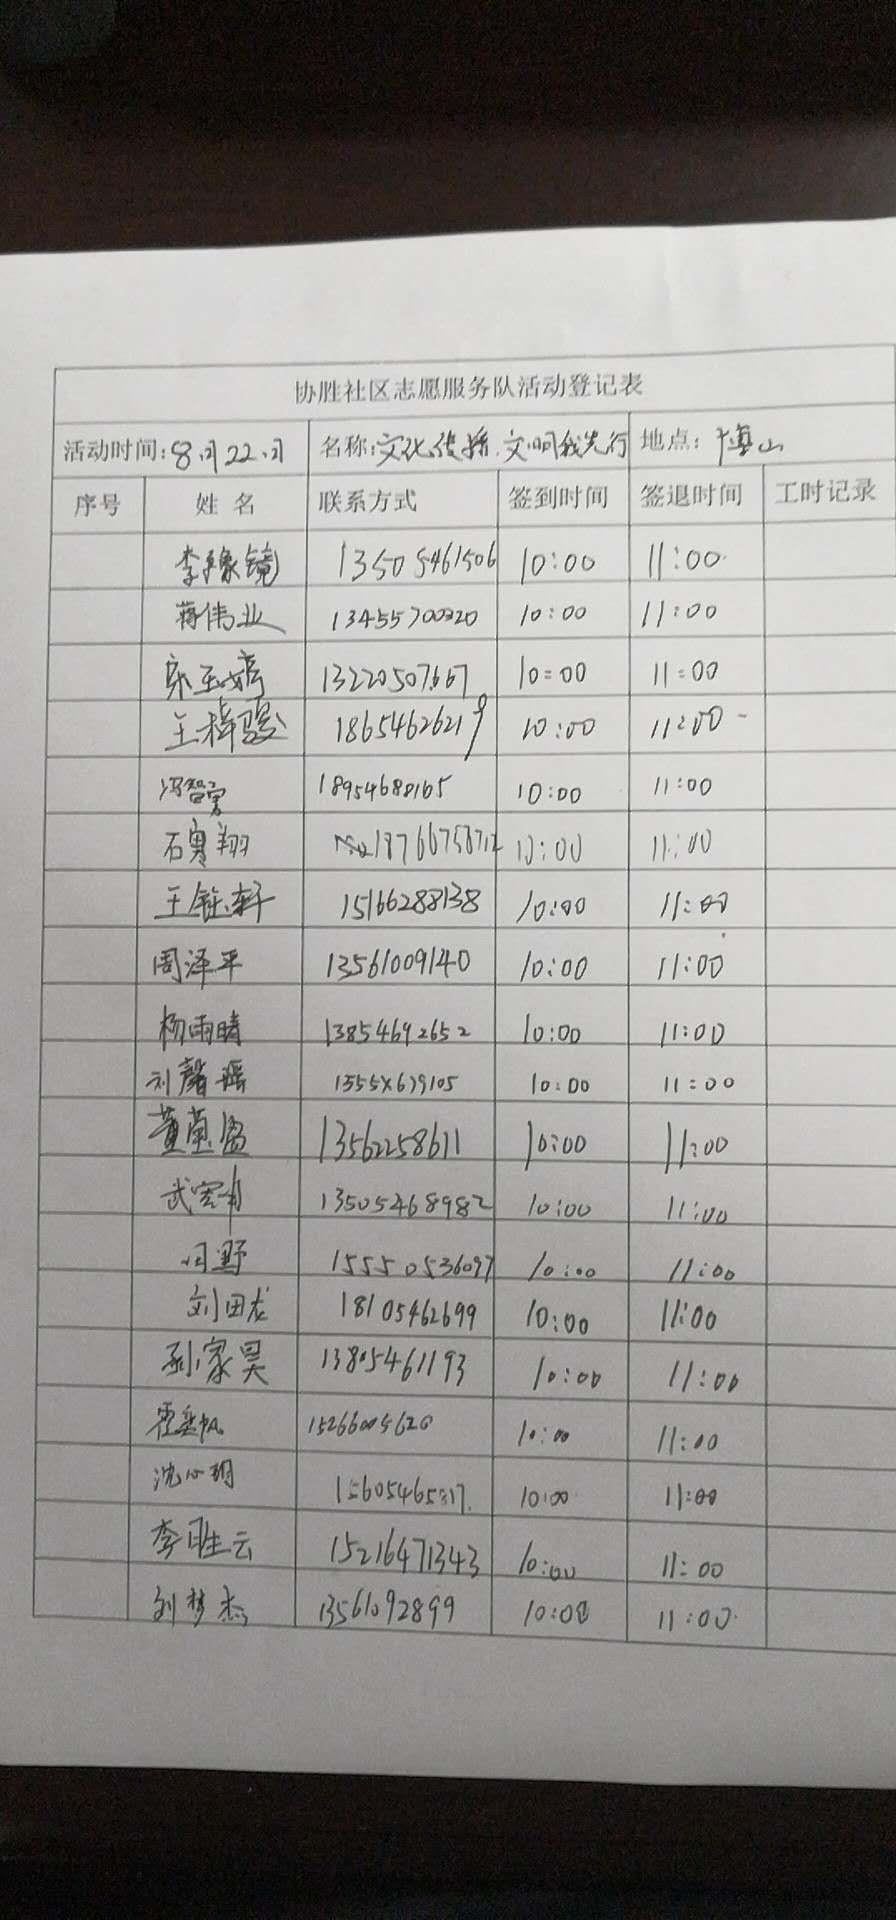 协胜社区志愿服务队活动登记表
活动时间:8月22日 名称:文化传播.文明我先行 地点:博山
序号 姓名 联系方式 签到时间 签退时间 工时记录
李豫镜 13505461506 10:00 11:00
蒋伟业 13455700320 10:00 11:00
玉婷 13220507667 10:00 11:00
王梓骏 18654626219 10:00 11:00
冯智勇 18954688165 10:00 11:00
石寒翔 10:00 11:00
王钰轩 15166288138 10:00 11:00
周泽平 13561009140 10:00 11:00
杨雨晴 13854692652 10:00 11:00
刘馨瑶 10:00 11:00
董 13562258611 10:00 11:00
武 13505468982 10:00 11:00
田野 15550536097 10:00 11:00
刘田龙 18105462699 10:00 11:00
孙家昊 13805461193 10:00 11:00
霍 15266005620 10:00 11:00
沈心玥 10:00 11:00
李胜云 15216471343 10:00 11:00
刘梦杰 13561092899 10:00 11:00